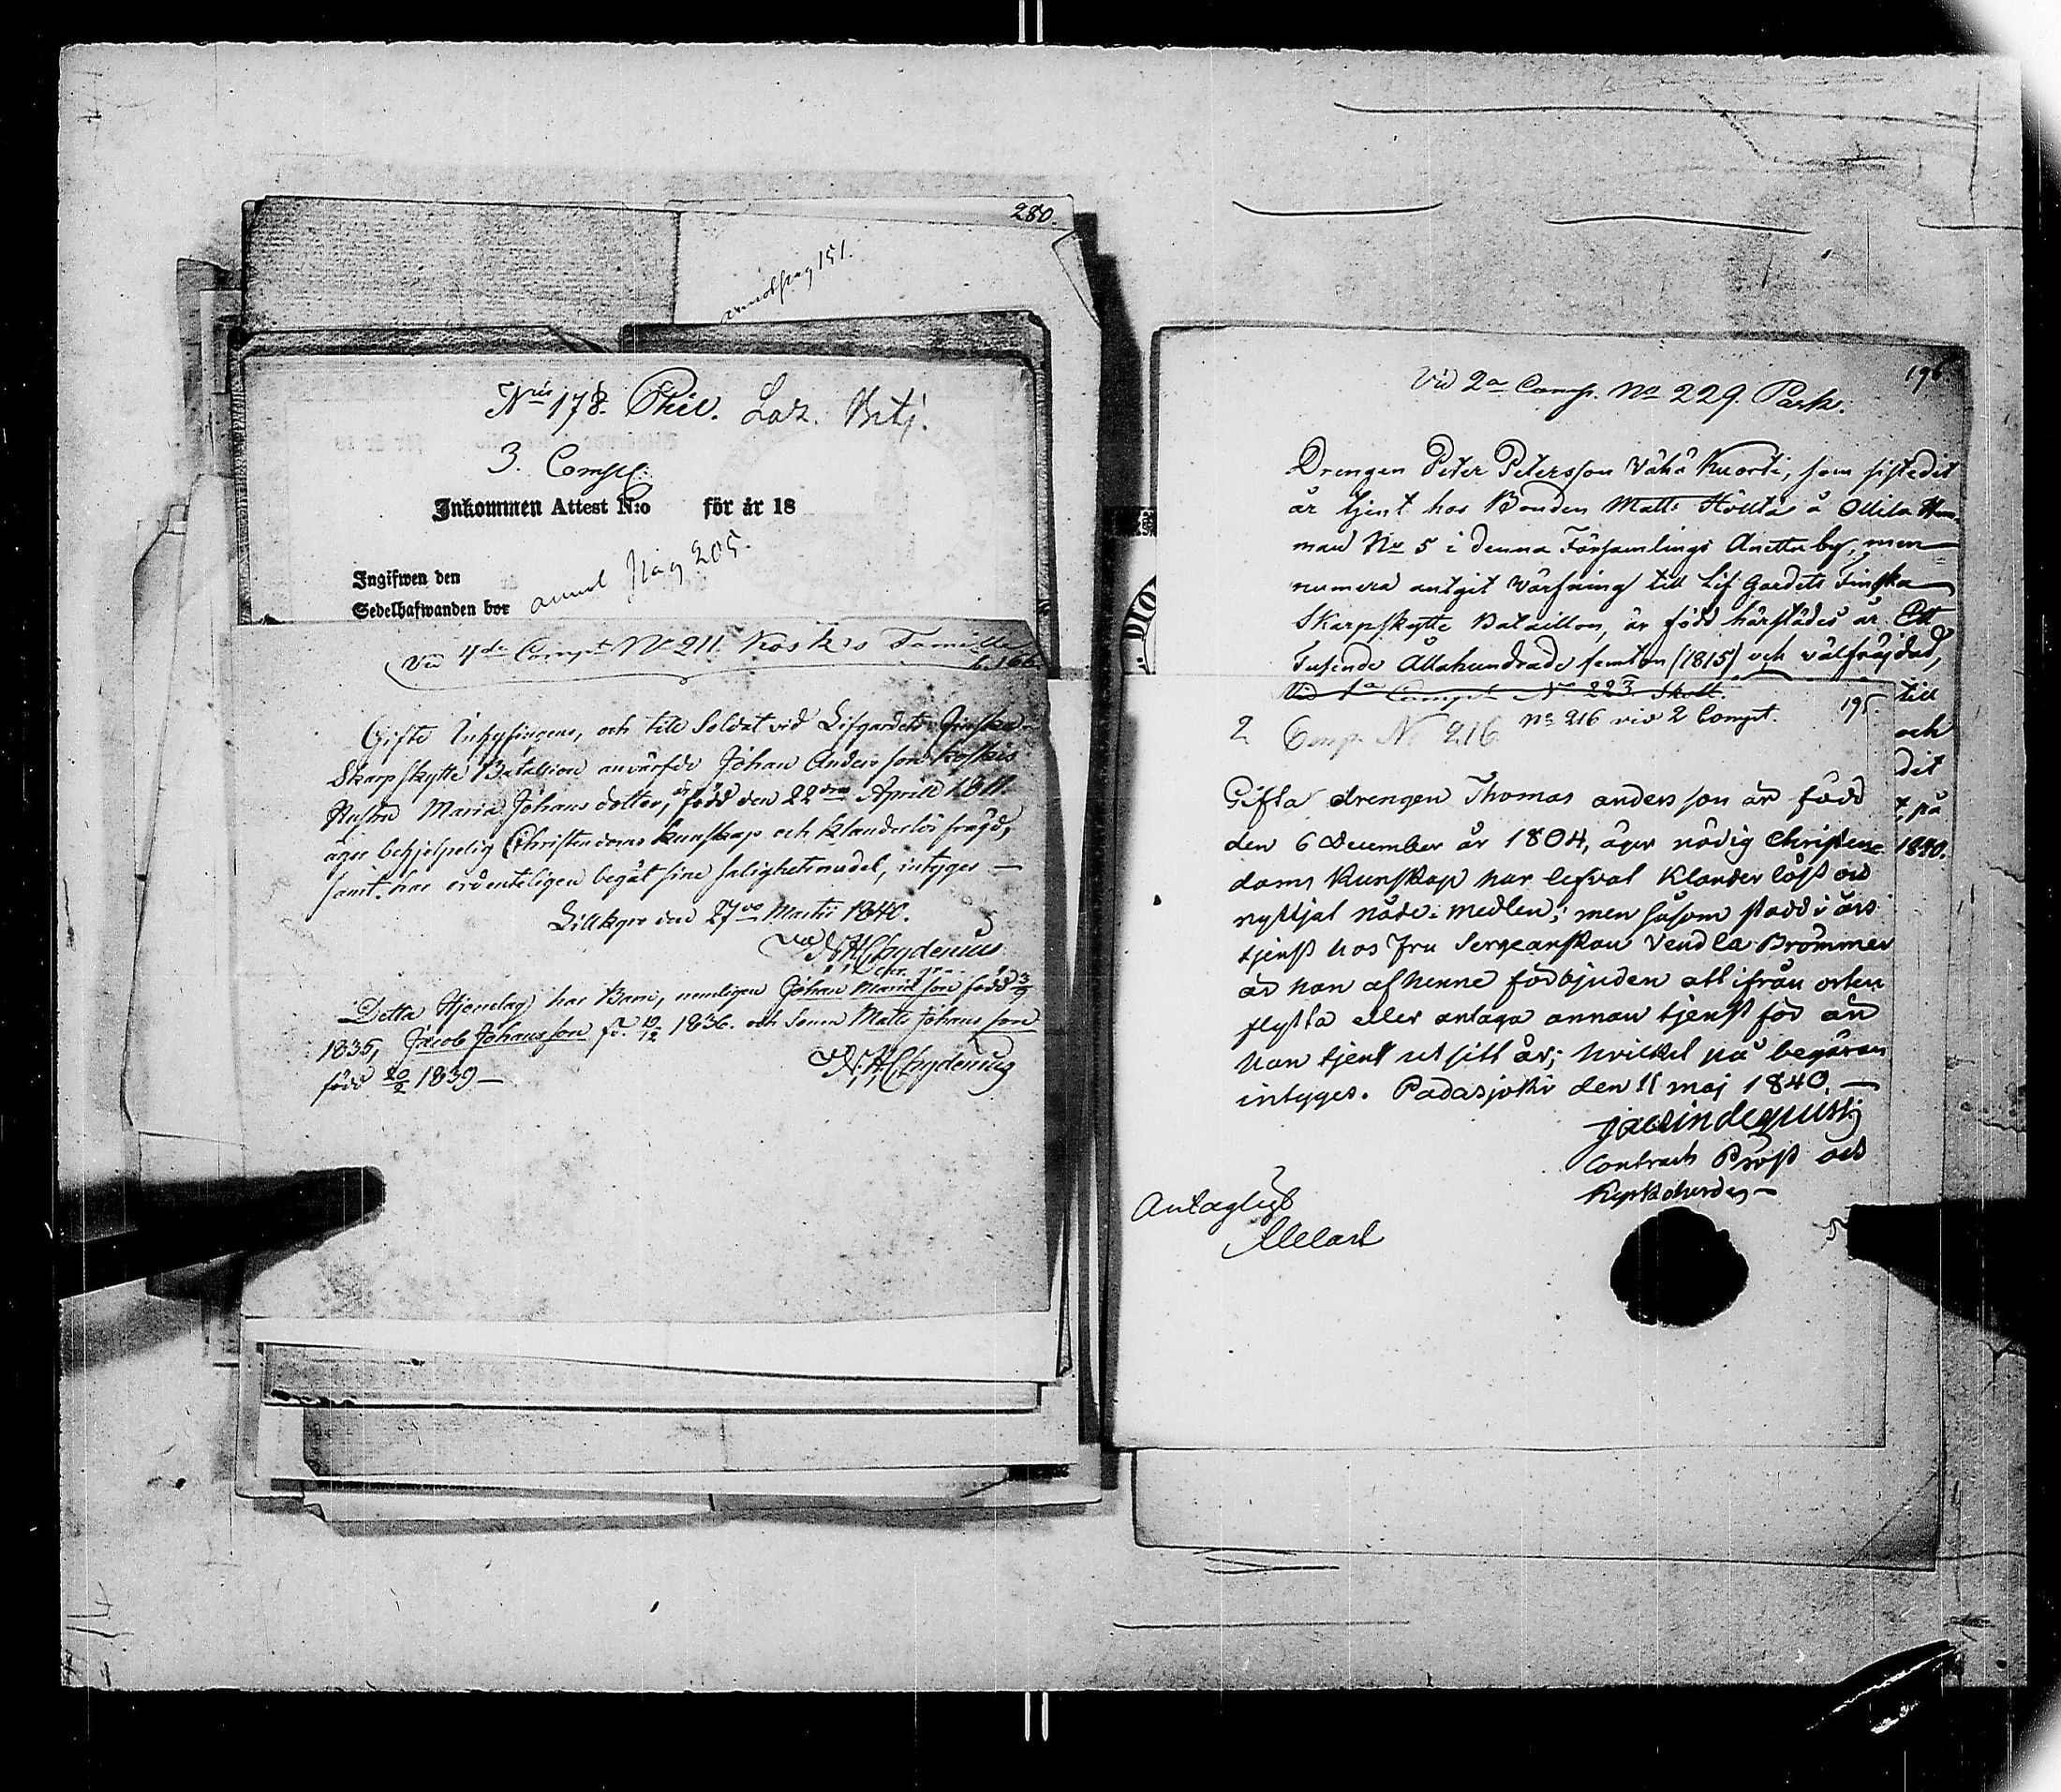 280.
151.
Nris 178. Phil. Laz. Betj.
3. Comp:
Inkommen Attest N:o för år 18
annot pag 205.
Ingifwen den
Sedelhafwanden bor
Vid 4de Compt No 211. Kosk's Familie
Gifte Inhysingens, och till Soldat vid Lifgardets Finska
Skarpskytte Batallion anvärfde Johan Andersson Koskis
Hustru Maria Johans dotter, är född den 22dra Aprill 1811.
äger behjelpelig Christendoms kunskap och klanderlös frägd,
samt har ordenteligen begåt sine salighetsmedel, intyges —
Lillkyro den 27de Martii 1840.
N. H. Chydenius
Detta Hjonelag har Barn, nemligen Johan Mariæ son född 3/9
1835, Jacob Johansson fd. 10/12 1836. och sonen Matts Johansson
född 20/2 1839 —
N. H. Chydenius
196.
Vid 2a Comp. No 229. Park.
Drengen Peter Petersson Vähä Kuorti, som sistledit
år tjent hos Bonden Matts Höltäs å Ollila Hem-
man No 5 i denna Församlings Anettu by, men
numera antgit Värfning till Lif Gardets Finska
Skarpskytte Bataillon, är född härstädes år Ett
Tusende Åttahundrade femton (1815) och välfräjdad,
till
och
dit
på
1840.
Vid 1a Compt No 223. Skott.
195.
2 Comp. No 216. No 216 vid 2 Compt.
Gifta drengen Thomas andersson är född
den 6 December år 1804, äger nödig Christen-
doms Kunskap har lefvat Klander löst och
nyttjat nåde-medlen; men såsom stadd i års
tjenst hos Fru Sergeanskan Vendla Brömmer
är han af henne förbjuden att ifrån orten
flytta eller antaga annan tjenst för än
han tjent ut sitt år; hvilket på begäran
intyges. Padasjoki den 11 maj 1840. —
Contracts Prost och
Kyrkoherde —
Antagligt
Melart